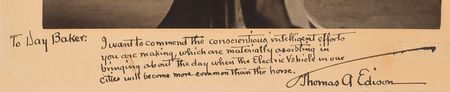 To Day Baker:
I want to commend the conscientious, intelligent efforts
you are making, which are materially assisting in
bringing about the day when the Electric Vehicle in our
Cities will become more common than the horse.
Thomas A Edison